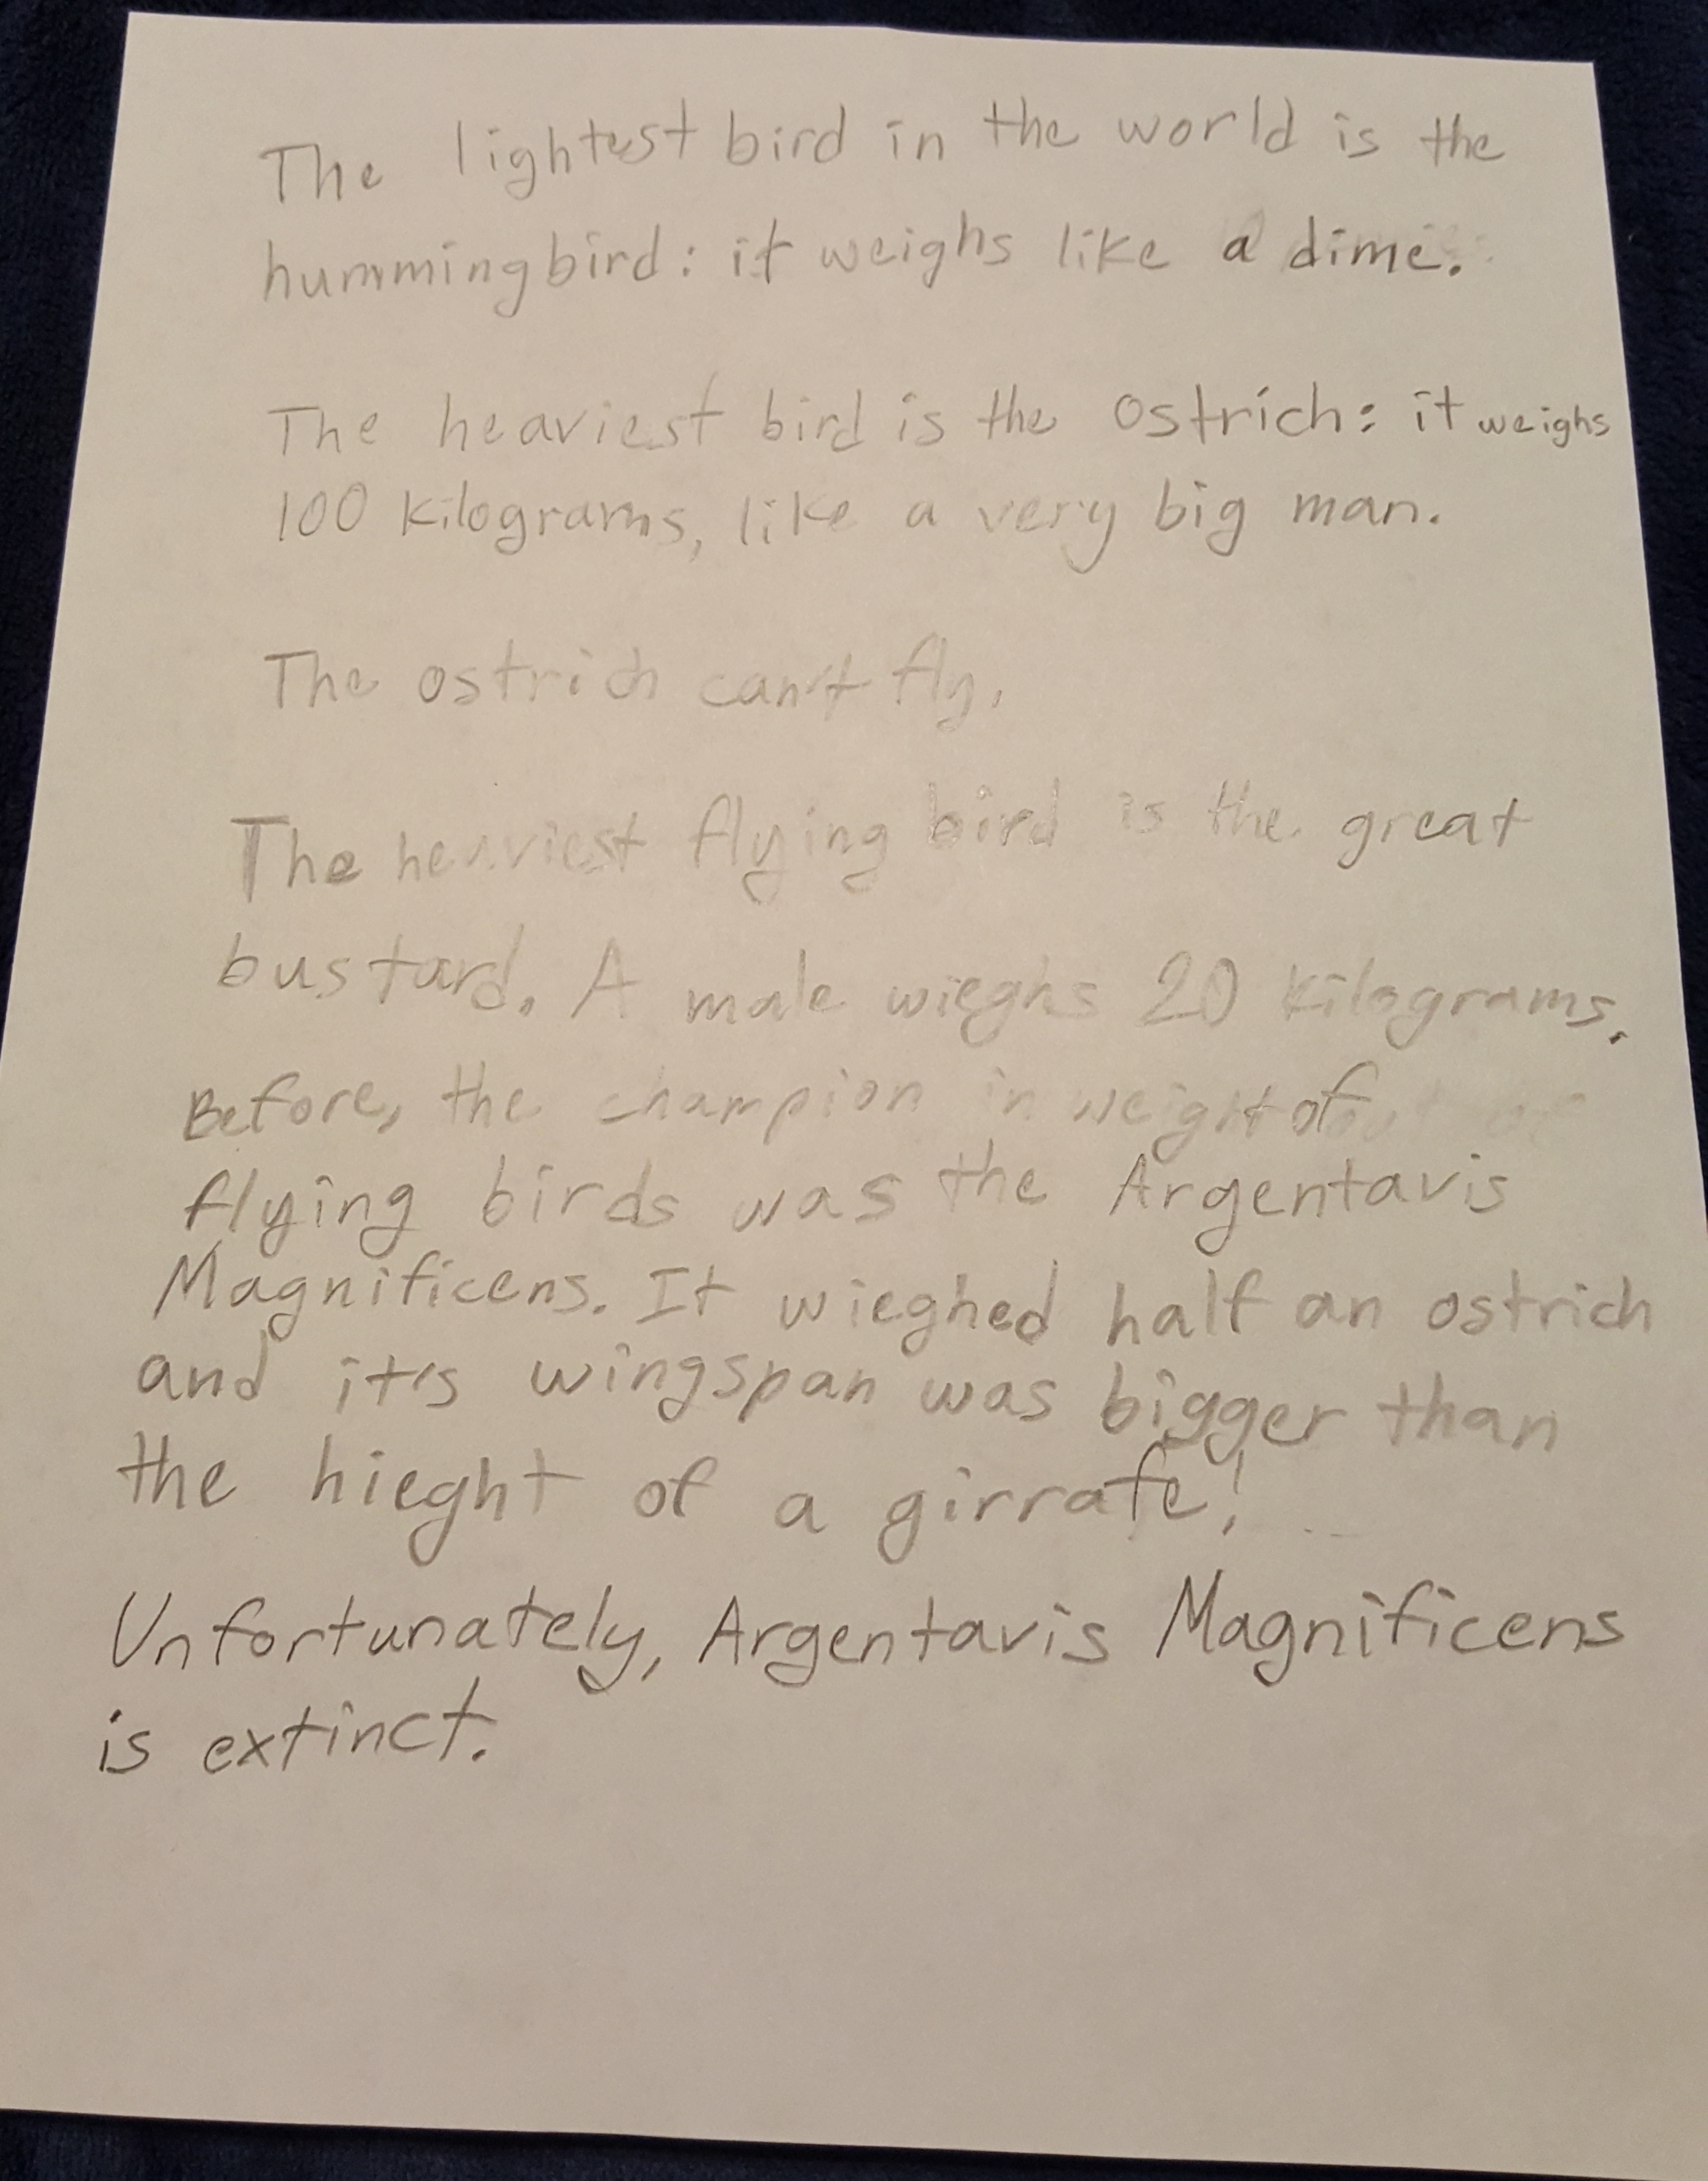 The lightest bird in the world is the
hummingbird: it weighs like a dime.
The heaviest bird is the ostrich: it weighs
100 kilograms, like a very big man.
The ostrich can't fly.
The heaviest flying bird is the great
bustard. A male wieghs 20 kilograms.
Before, the champion in weight of
flying birds was the Argentavis
Magnificens. It wieghed half an ostrich
and it's wingspan was bigger than
the hieght of a girrafe!
Unfortunately, Argentavis Magnificens
is extinct.